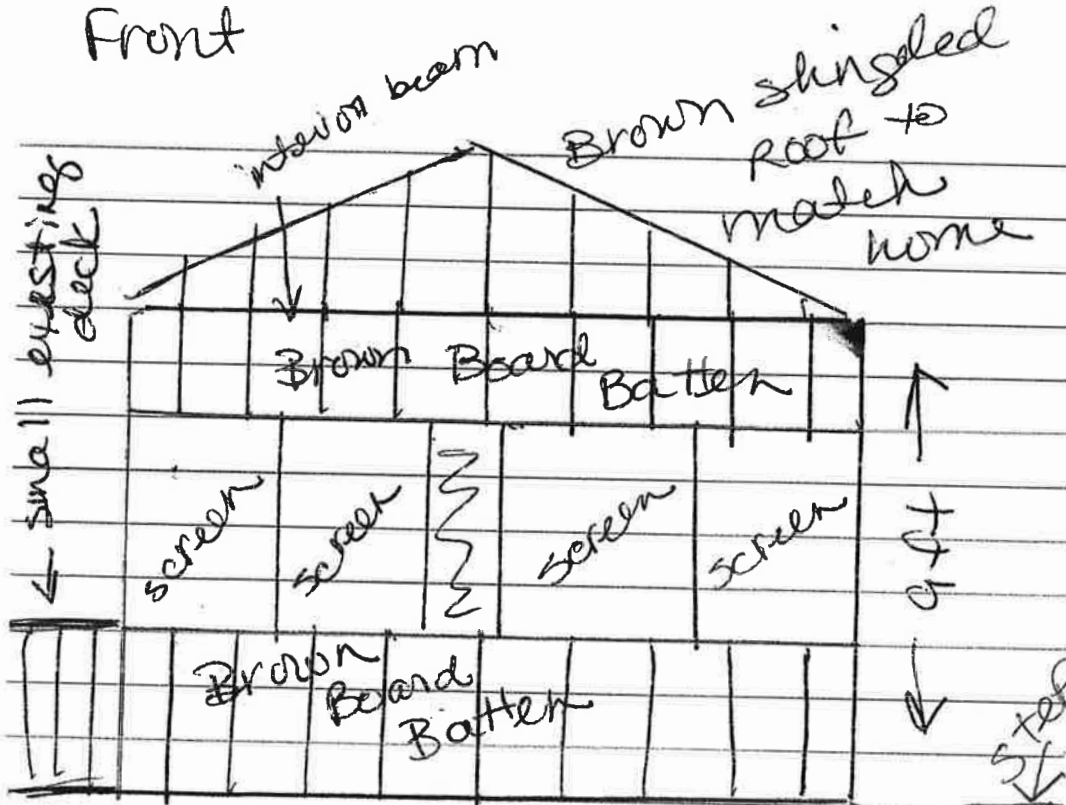 Front
interior beam
Brown shingled
Roof to
match
home
small existing
deck
Brown Board
Batten
screen
screen
screen
screen
9 ft
Brown
Board
Batten